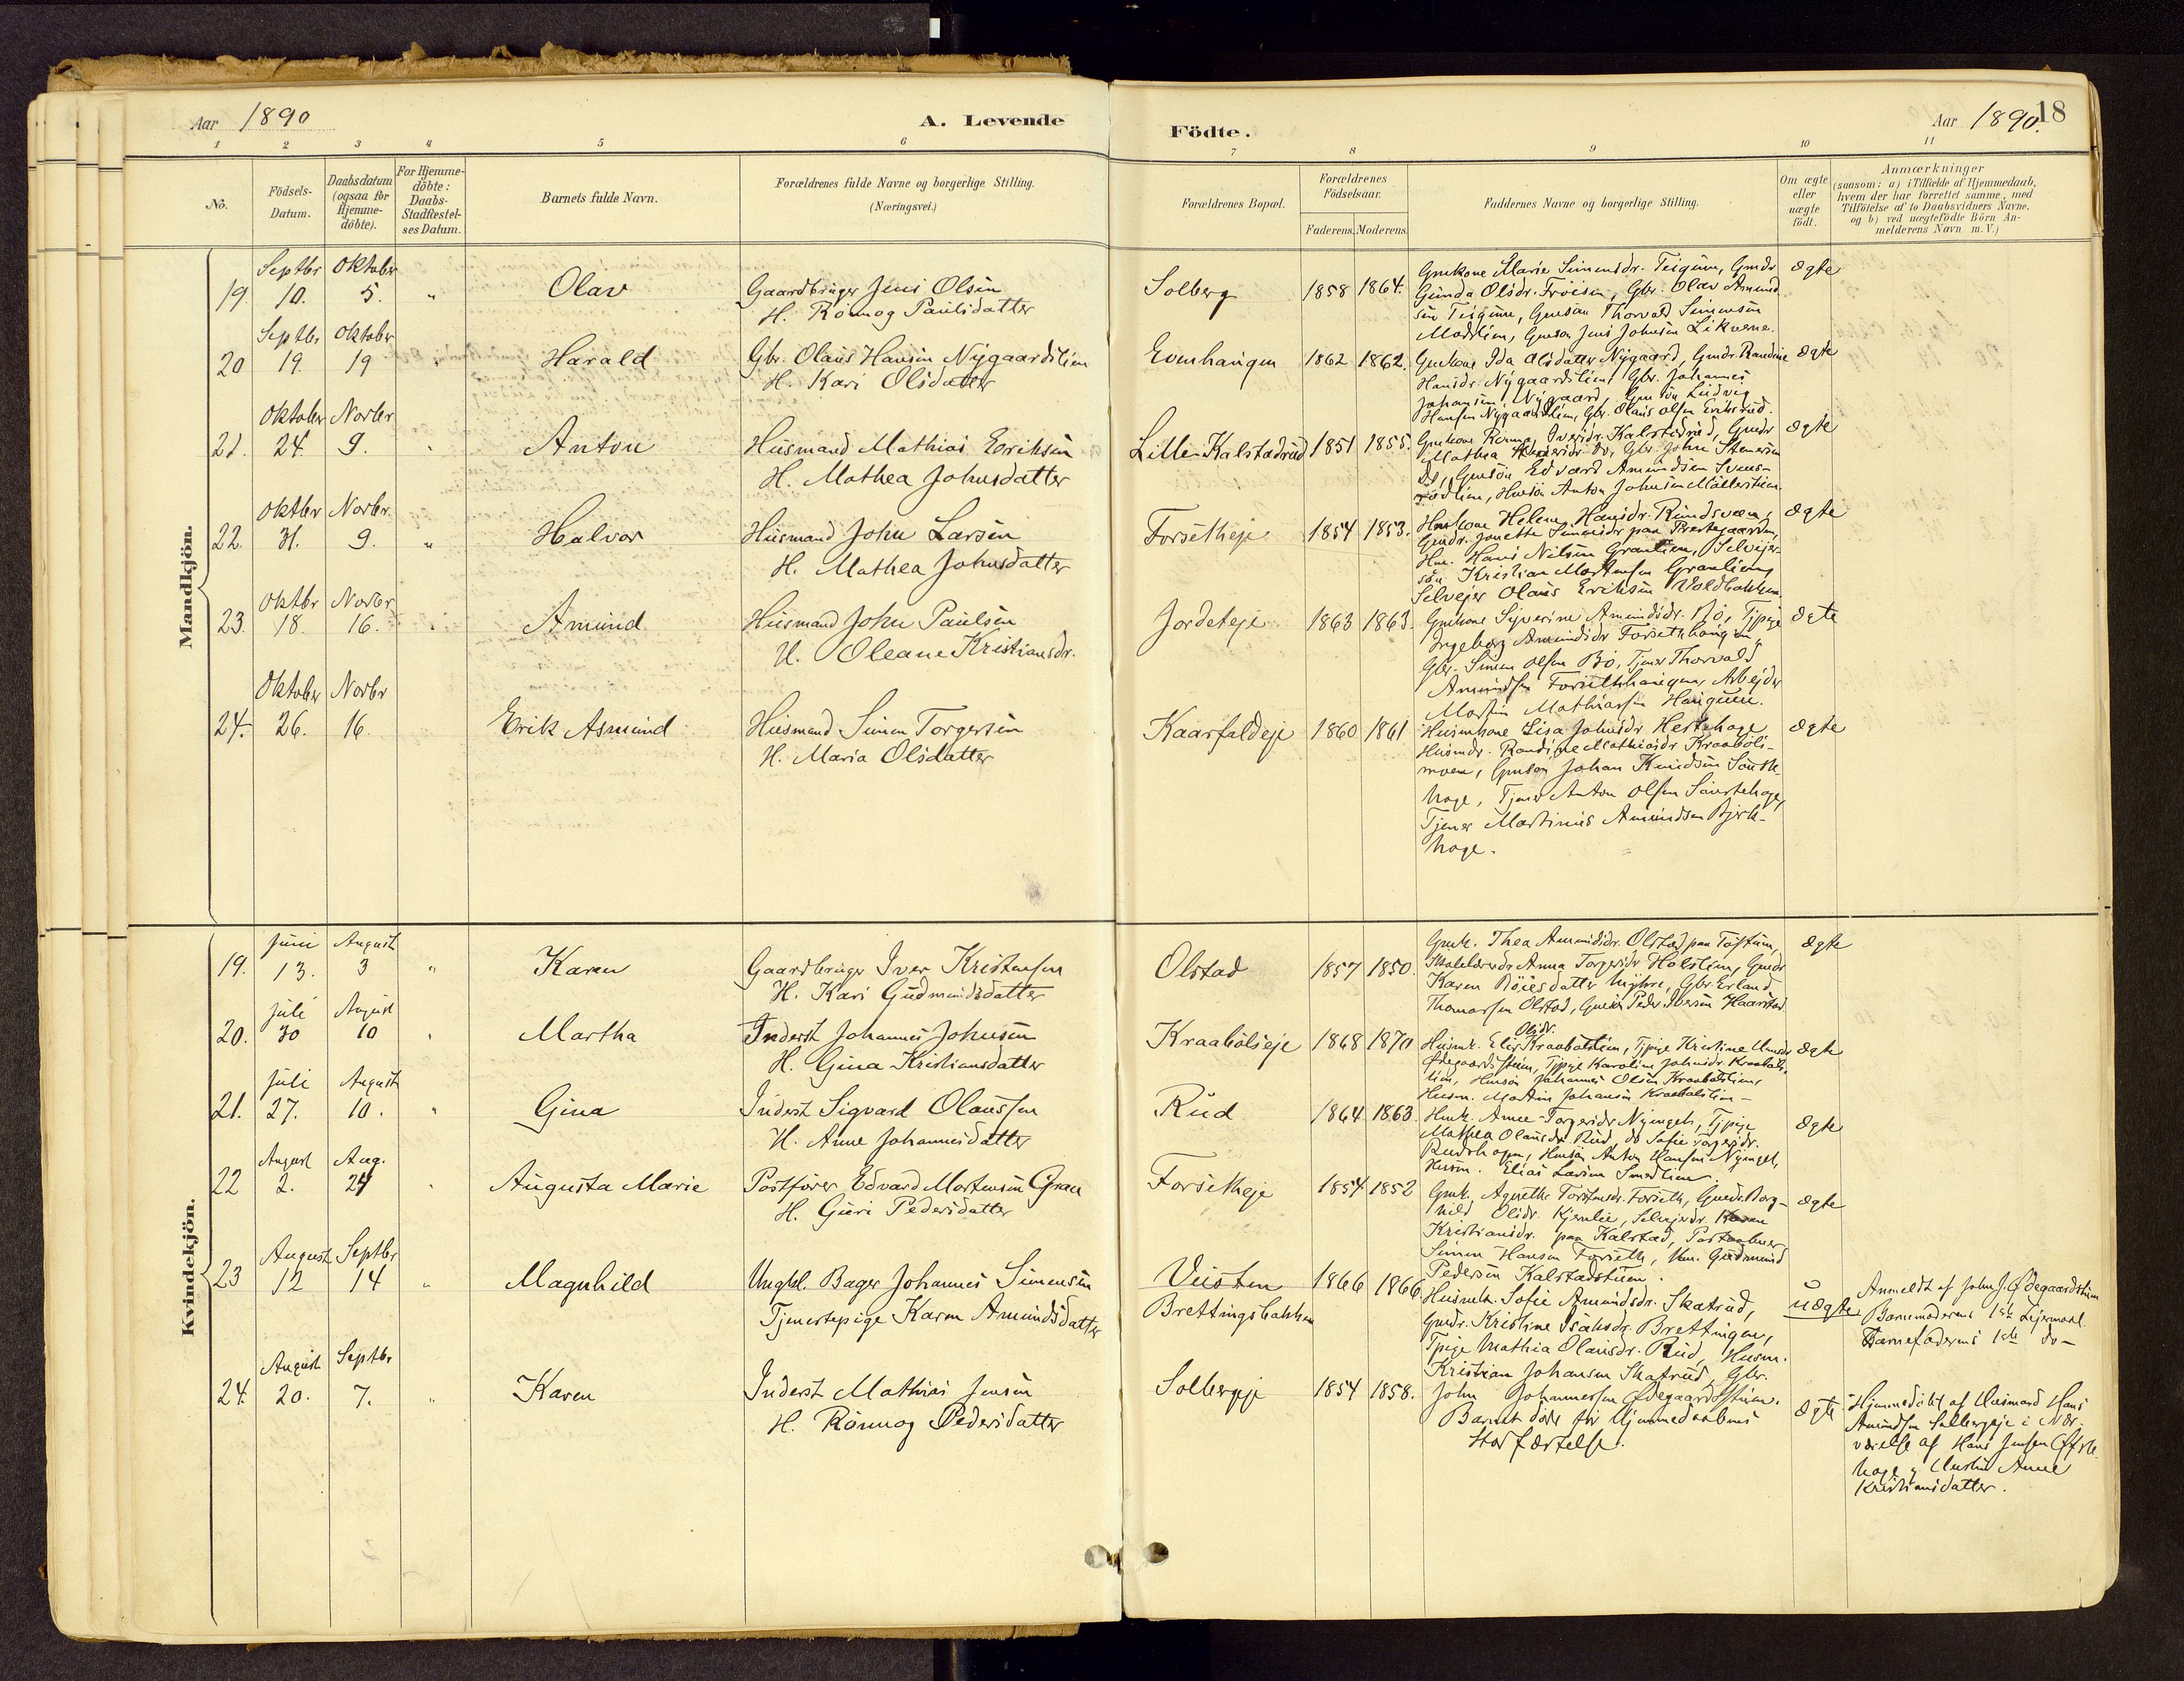 Aar 1890
A. Levende
Födte.
Aar 1890.
18
1 2 3 4 5 6 7 8 9 10 11
No.
Födsels-
Datum.
Daabsdatum
(ogsaa for
Hjemme-
döbte).
For Hjemme-
döbte:
Daabs-
Stadfæstel-
ses Datum.
Barnets fulde Navn.
Forældrenes fulde Navne og borgerlige Stilling.
(Næringsvei.)
Forældrenes Bopæl.
Forældrenes
Födselsaar.
Faderens. Moderens.
Faddernes Navne og borgerlige Stilling.
Om ægte
eller
uægte
födt.
Anmærkninger
(saasom: a) i Tilfælde af Hjemmedaab,
hvem der har forrettet samme, med
Tilföielse af to Daabsvidners Navne.
og b) ved uægtefödte Börn An-
melderens Navn m. V.)
Mandkjön.
19. Septbr 10. Oktober 5. " Olav
Gaardbruger Jens Olsen
H. Rönnog Paulsdatter
Solberg 1858 1864.
Gmkone Marie Simensdr. Teigum, Gmdr
Gunda Olsdr. Fröisen, Gbr. Olav Amund
sen Teigum, Gmsön Thorvald Simensen
Modslien, Gmsön Jens Johnsen Likverne.
ægte
20 Septbr 19. Oktober 19 " Harald
Gbr. Olaus Hansen Nygaardslien
H. Kari Olsdatter
Evenhaugen 1862 1862.
Gmkone Ida Olsdatter Nygaard, Gmdr. Randine
Hansdr. Nygaardslien, Gbr. Johannes
Johansen Nygaard, Gmsön Ludvig
Hansen Nygaardslien, Gbr. Olaus Olsen Eriksrud.
ægte
21. Oktober 24. Novbr. 9. " Anton
Husmand Mathias Eriksen
H. Mathea Johnsdatter
Lille-Kalstadrud 1851 1855.
Gmkone Rönnog Iversdr. Kalstadrud, Gmdr
Mathea do, Gbr. John Stenersen
do, Gmsön Edvard Amundsen Svens-
rödlien, Hmsön Anton Johnsen Möllerstuen.
ægte
22. Oktbr 31. Novbr. 9. " Halvor
Husmand John Larsen
H. Mathea Johnsdatter
Forsetheje 1854 1853.
Hmkone Helene Hansdr. Rundsveen,
Gmdr. Jonette Simensdr paa Prestegaarden,
Hm. Hans Nilsen Granlien, Selvejer-
sön Kristian Mortensen Granlien,
Selvejer Olaus Eriksen Voldbakken
ægte
23. Oktbr 18. Novbr 16. " Amund
Husmand John Paulsen
H. Oleane Kristiansdr.
Jordeteje 1863 1863.
Gmkone Syverine Amundsdr. Bö, Tjpige
Ingeborg Amundsdr Forsethhaugen,
Gbr. Simen Olsen Bö, Tjener Thorvald
Amundsen Forsethhaugen, Arbejder
Martin Mathiassen Haugen.
ægte
24. Oktober 26. Novbr 16. Erik Asmund
Husmand Simen Torgersen
H. Maria Olsdatter
Kaarfaldeje 1860 1861
Husmkone Lisa Johnsdr Hestehage
Husmdr. Randine Mathiasdr Kraaböls-
moen, Gmsön Johan Knudsen Saueh-
hage, Tjener Anton Olsen Sauehage,
Tjener Martinus Amundsen Bjerk-
hage.
ægte
Kvindekjön.
19. Juni 13. August 3 " Karen
Gaardbruger Iver Kristensen
H. Kari Gudmundsdatter
Olstad 1857 1850.
Gmk. Thea Amundsdr. Olstad paa Toftum,
Skolelærerdr Anna Torgersdr Holslien, Gmdr
Karen Böiesdatter Myhre, Gbr. Erland
Thomassen Olstad, Gmsön Peder Iversen Haarstad
ægte
20. Juli 30 August 10 " Martha
Inderst Johannes Johnsen
H. Gina Kristiansdatter
Kraabölseje 1868 1870
Olsdr.
Husmk. Elis Kraabölslien, Tjpige Kristine
Ödegaardsstuen, Tjpige Karoline Johnsdr. Kraaböls-
lien, Hmsön Johannes Olsen Kraabölslien,
Husm. Martin Johansen Kraabölslien -
ægte
21. Juli 27. August 10. " Gina
Inderst Sigvard Olaussen
H. Anne Johannesdatter
Rud 1864 1863.
Hmk. Anne Torgersdr Nyenget, Tjpige
Mathea Olausdr Rud, do Sofie Torgersdr.
Rudshagen, Hmsön Anton Hansen Nyenget,
Husm. Elias Larsen Smedlien.
ægte
22 August 2. Aug. 24 " Augusta Marie
Postförer Edvard Mortensen Gran
H. Guri Pedersdatter
Forsetheje 1854 1852
Gmk. Agnethe Torstensdr. Forseth, Gmdr. Borg-
hild Olsdr. Kjernlie, Selvejerdr. Karen
Kristiansdr. paa Kalstad, Postaabner
Simen Hansen Forseth, Um. Gudmund
Pedersen Kalstadstuen.
ægte
23 August 12 Septbr 14 " Magnhild
Ungkl. Bager Johannes Simensen
Tjenestepige Karen Amundsdatter
Veisten
Brettingsbakken
1866 1866.
Husmk. Sofie Amundsdr. Skatrud,
Gmdr. Kristine Isaksdr. Brettingen,
Tpige Mathia Olausdr. Rud, Husm.
Kristian Johansen Skatrud, Gbr.
John Johannessen Ödegaardsstuen.
uægte
Anmeldt af John J. Ödegaardstuen
Barnemoderens 1ste Lejermaal
Barnefaderens 1ste do -
24. August 20. Septbr 7. " Karen
Inderst Mathias Jensen
H. Rönnog Pedersdatter
Solbergeje 1854 1858.
Barnet döde för Hjemmedaabens
Stadfæstelse.
ægte
Hjemmedöbt af Husmand Hans
Amundsen Solbergeje i Nær-
værelse af Hans Jensen
hage og Hustru Anne
Kristiansdatter.